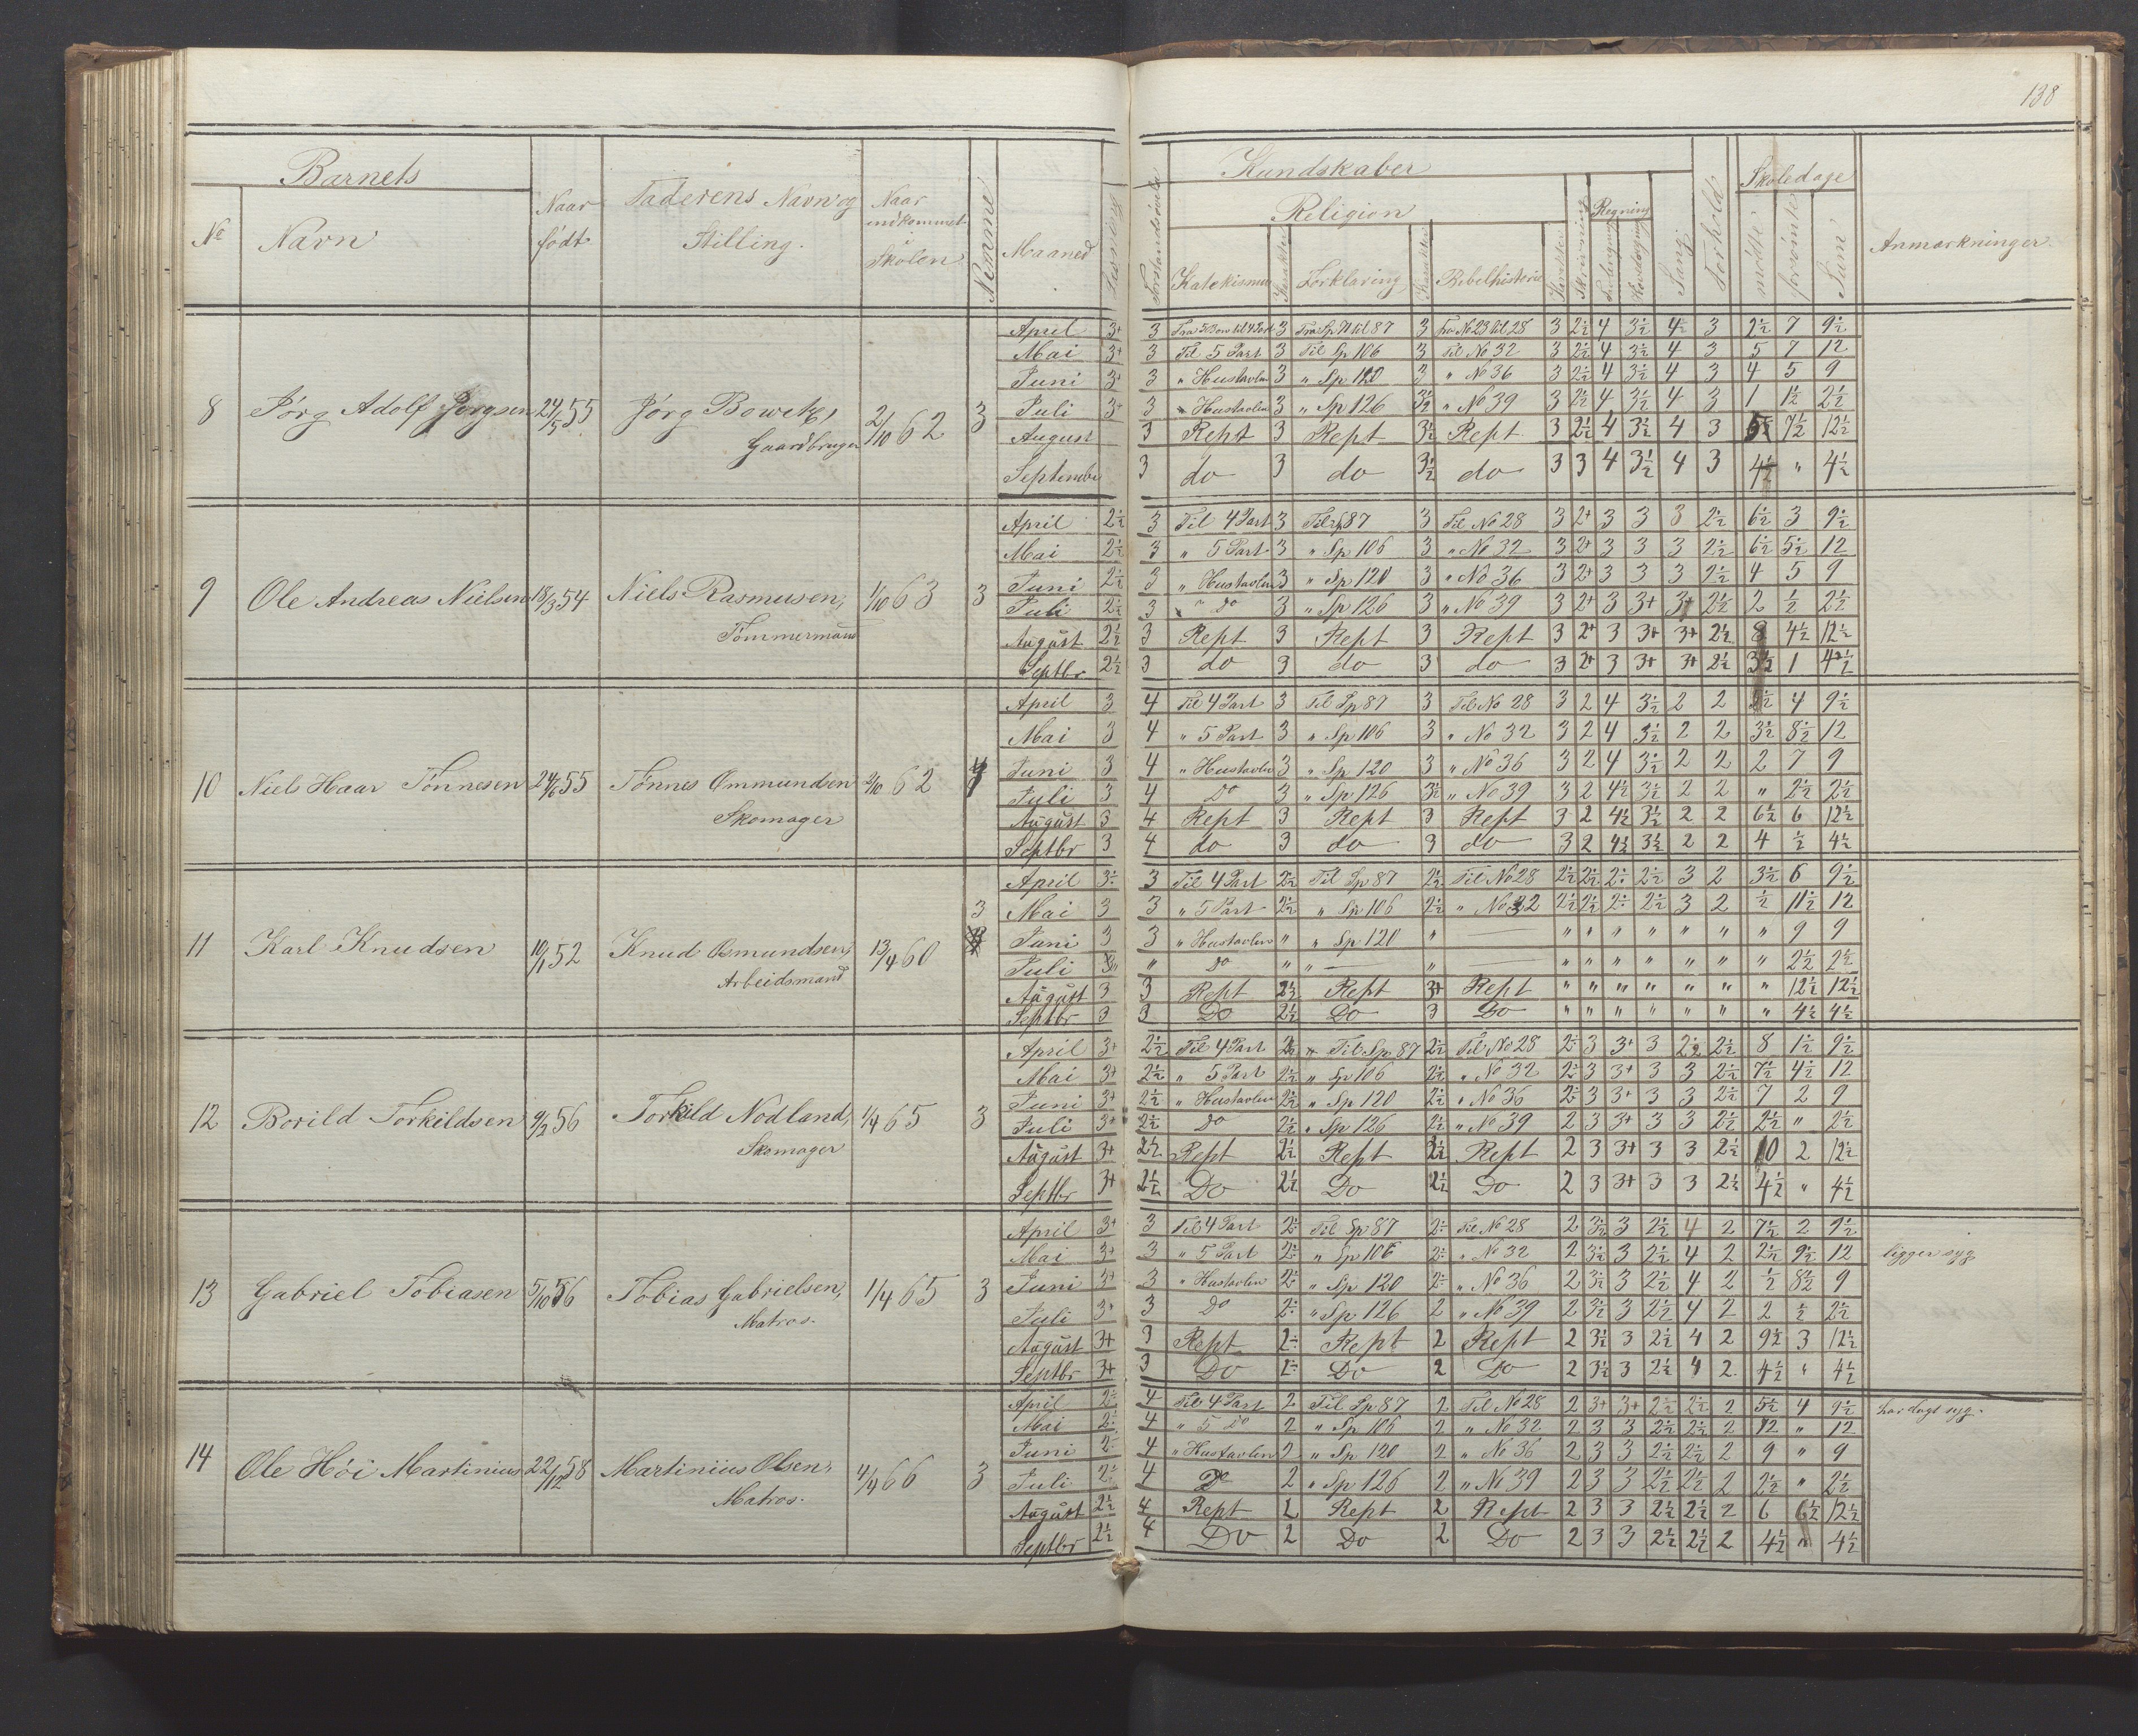 138
Barnets
No
Navn
Naar født
Faderens Navn og Stilling.
Naar indkommet i Skolen
Nemme
Maaned
Læsning
Forstandsøvelse
Kundskaber
Religion
Katekismus
Karakter
Forklaring
Karakter
Bibelhistorie
Karakter
Skrivning
Regning
Sang
Forhold
Skoledage
mødte
forsømte
Sum
Anmærkninger.
8 Jørg Adolf Jørgsen 24/5 55 Jørg Bowitz, Gaardbruger 2/10 62 3
April 3+ 3 3 Fra Sp 70 til 87 3 fra No 23 til 28 3 2½ 4 3½ 4½ 3 2½ 7 9½
Mai 3+ 3 Til 5 Part 3 Til Sp 106 3 Til No 32 3 2½ 4 3½ 4 3 5 7 12
Juni 3+ 3 " Hustavlen 3 " Sp 120 3 " No 36 3 2½ 4 3½ 4 3 4 5 9
Juli 3+ 3 " Hustavlen 3 " Sp 126 3½ " No 39 3 2½ 4 3½ 4 3 1 1½ 2½
August 3 Rept 3 Rept 3½ Rept 3 2½ 4 3½ 4 3 5½ 7½ 12½
September 3 do 3 do 3½ do 3 3 4 3½ 4 3 4½ " 4½
9 Ole Andreas Nielsen 18/3 54 Niels Rasmusen, Tømmermand 1/10 63 3
April 2½ 3 Til 4 Part 3 Til Sp 87 3 Til No 28 3 2+ 3 3 3 2½ 6½ 3 9½
Mai 2½ 3 " 5 Part 3 " Sp 106 3 " No 32 3 2+ 3 3 3 2½ 6½ 5½ 12
Juni 2½ 3 " Hustavlen 3 " Sp 120 3 " No 36 3 2+ 3 3 3 2½ 4 5 9
Juli 2½ 3 " Do 3 " Sp 126 3 " No 39 3 2+ 3 3+ 3+ 2½ 2 ½ 2½
August 2½ 3 Rept 3 Rept 3 Rept 3 2+ 3 3+ 3+ 2½ 8 4½ 12½
Septbr 2½ 3 do 3 do 3 do 3 2+ 3 3+ 3+ 2½ 3½ 1 4½
10 Niels Haar Tønnesen 24/6 55 Tønnes Ommundsen Skomager 2/10 62
April 3 4 Til 4 Part 3 Til Sp 87 3 Til No 28 3 2 4 3½ 2 2 5½ 4 9½
Mai 3 4 " 5 Part 3 " Sp 106 3 " No 32 3 2 4 3½ 2 2 3½ 8½ 12
Juni 3 4 " Hustavlen 3 " Sp 120 3 " No 36 3 2 4 3½ 2 2 2 7 9
Juli 3 4 Do 3 " Sp 126 3½ " No 39 3 2 4½ 3½ 2 2 " 2½ 2½
August 3 4 Rept 3 Rept 3 Rept 3 2 4½ 3½ 2 2 6½ 6 12½
Septbr 3 4 do 3 do 3 do 3 2 4½ 3½ 2 2 4 ½ 4½
11 Karl Knudsen 10/1 52 Knud Osmundsen, Arbeidsmand 13/4 60 3
April 3÷ 3 Til 4 Part 2½ Til Sp 87 2½ Til No 28 2½ 2½ 2÷ 2½ 3 2 3½ 6 9½
Mai 3 3 " 5 Part 2½ " Sp 106 2½ " No 32 2½ 2½ 2÷ 2½ 3 2 ½ 11½ 12
Juni 3 3 " Hustavlen " " Sp 120 " — " " " " " " " 9 9
Juli " Do " " — " — " " " " " " " 2½ 2½
August 3 3 Rept 2½ Rept 3+ Rept " " " " " " " 12½ 12½
Septbr 3 3 Do 2½ Do 3 Do " " " " " " " 4½ 4½
12 Borild Torkildsen 9/2 56 Torkild Nodland, Skomager 1/4 65 3
April 3+ 2½ Til 4 Part 2½ " Til Sp 87 2½ Til No 28 2÷ 3 3+ 3 2½ 2½ 8 1½ 9½
Mai 3+ 2½ " 5 Part 2½ " Sp 106 2½ " No 32 2÷ 3 3+ 3 3 2½ 7½ 4½ 12
Juni 3+ 2½ " Hustavlen 2½ " Sp 120 2½ " No 36 2÷ 3 3+ 3 3 2½ 7 2 9
Juli 3+ 2½ Do 2½ " Sp 126 2½ " No 39 2 3 3+ 3 3 2½ 2½ " 2½
August 3+ 2½ Rept 2½ Rept 2½ Rept 2 3 3+ 3 3 2½ 10 2 12½
Septbr 3+ 2½ Do 2½ Do 2½ Do 2 3 3+ 3 3 2½ 4½ " 4½
13 Gabriel Tobiasen 5/10 56 Tobias Gabrielsen, Matros. 1/4 65 3
April 3+ 3 Til 4 Part 2÷ Til Sp 87 2÷ Til No 28 2 3½ 3 2½ 4 2 7½ 2 9½
Mai 3+ 3 " 5 Part 2÷ " Sp 106 2÷ " No 32 2 3½ 3 2½ 4 2 2½ 9½ 12 ligger syg
Juni 3+ 3 " Hustavlen 2÷ " Sp 120 2÷ " No 36 2 3½ 3 2½ 4 2 ½ 8½ 9
Juli 3+ 3 Do 2÷ " Sp 126 2 " No 39 2 3½ 3 2½ 4 2 2 ½ 2½
August 3+ 3 Rept 2÷ Rept 2 Rept 2 3½ 3 2½ 4 2 9½ 3 12½
Septbr 3+ 3 Do 2÷ Do 2 Do 2 3½ 3 2½ 4 2 4½ " 4½
14 Ole Höi Martinius 22/12 58 Martinius Olsen, Matros. 4/4 66 3
April 2½ 4 Til 4 Part 2 Til Sp 87 2 Til No 28 2 3+ 3+ 2½ 2½ 2 5½ 4 9½ syg.
Mai 2÷ 4 " 5 Do 2 " Sp 106 2 " No 32 2 3 3 2½ 2½ 2 12 " 12
Juni 2÷ 4 " Hustavlen 2 " Sp 120 2 " No 36 2 3 3 2½ 2½ 2 9 " 9
Juli 2½ 4 Do 2 " Sp 126 2 " No 39 2 3 3 2½ 2½ 2 2½ " 2½
August 2½ 4 Rept 2 Rept 2 Rept 2 3 3 2½ 2½ 2 6 6½ 12½
Septbr 2½ 4 Do 2 Do 2 Do 2 3 3 2½ 2½ 2 4½ " 4½